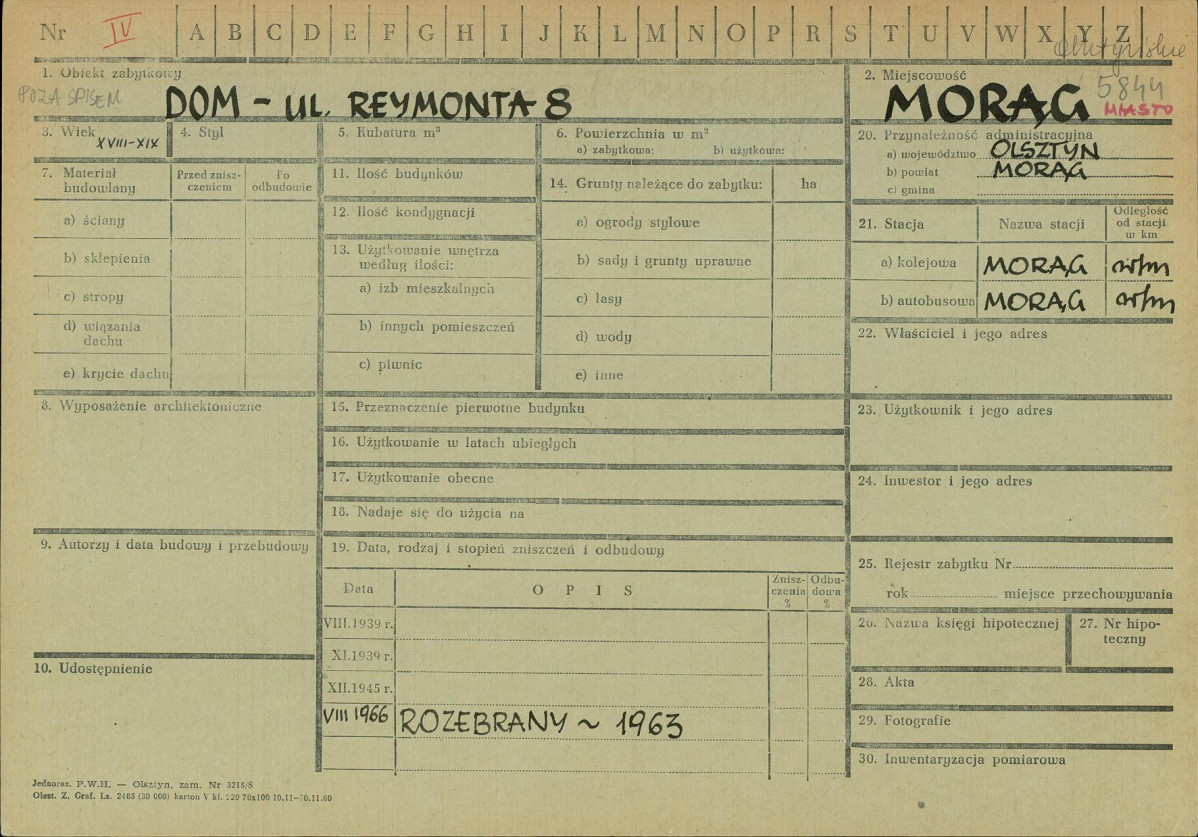 Nr IV A B C D E F G H I J K L M N O P R S T U V W X Y Z
olsztyńskie
1. Obiekt zabytkowy
POZA SPISEM
DOM - UL. REYMONTA 8
2. Miejscowość
5844
MORĄG MIASTO
3. Wiek XVIII-XIX
4. Styl
5. Kubatura m³
6. Powierzchnia w m²
a) zabytkowa: b) użytkowa:
20. Przynależność administracyjna
a) województwo OLSZTYN
b) powiat MORĄG
c) gmina
7. Materiał budowlany
Przed znisz-
czeniem
Po
odbudowie
a) ściany
b) sklepienia
c) stropy
d) wiązania
dachu
e) krycie dachu
11. Ilość budynków
12. Ilość kondygnacji
13. Użytkowanie wnętrza
według ilości:
a) izb mieszkalnych
b) innych pomieszczeń
c) piwnic
14. Grunty należące do zabytku: ha
a) ogrody stylowe
b) sady i grunty uprawne
c) lasy
d) wody
e) inne
21. Stacja
Nazwa stacji
Odległość
od stacji
w km
a) kolejowa MORĄG
b) autobusowa MORĄG
22. Właściciel i jego adres
8. Wyposażenie architektoniczne
15. Przeznaczenie pierwotne budynku
16. Użytkowanie w latach ubiegłych
17. Użytkowanie obecne
18. Nadaje się do użycia na
23. Użytkownik i jego adres
24. Inwestor i jego adres
9. Autorzy i data budowy i przebudowy
19. Data, rodzaj i stopień zniszczeń i odbudowy
Data
O P I S
Znisz-
czenia
%
Odbu-
dowa
%
VIII.1939 r.
XI.1939 r.
XII.1945 r.
VIII 1966 ROZEBRANY ~ 1963
25. Rejestr zabytku Nr
rok miejsce przechowywania
26. Nazwa księgi hipotecznej
27. Nr hipo-
teczny
10. Udostępnienie
28. Akta
29. Fotografie
30. Inwentaryzacja pomiarowa
Jednoraz. P.W.H. — Olsztyn, zam. Nr 3215/S
Olszt. Z. Graf. Lz. 2485 (30 000) karton V kl. 220 70x100 10.11—30.11.60